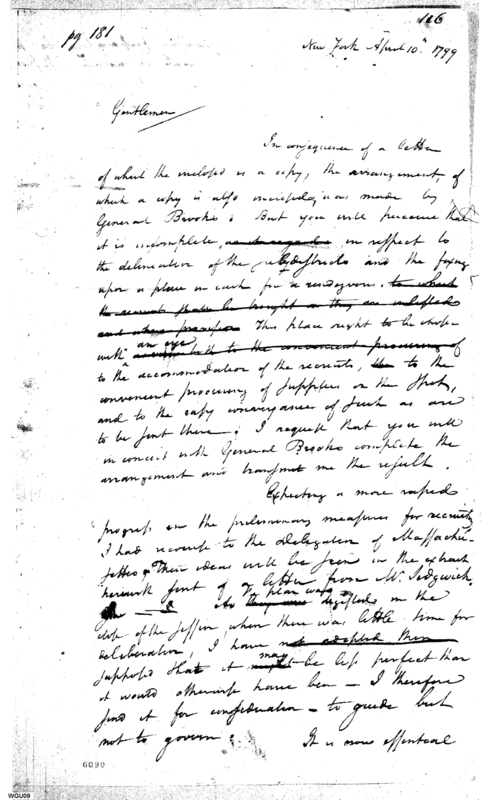 pg 181
116
New York April 10th 1799
Gentlemen
In consequence of a letter
of which the inclosed is a copy, the arrangement, of
which a copy is also inclosed, was made by
General Brooks; But you will perceive that
it is incomplete, as it regards in respect to
the delineation of the subdistricts and the fixing
upon a place in each for a rendezvous. to which
the recruits shall be brought as they are inlisted
This place ought to be chosen
with an eye both to the convenient procuring of
to the accommodation of the recruits, to the
convenient procuring of supplies on the spot,
and to the easy conveyance of such as are
to be sent there; I request that you will
in concert with General Brooks complete the
arrangement and transmit me the result.
Expecting a more rapid
progress in the preliminary measures for recruiting
I had recourse to the delegation of Massachu-
setts. Their ideas will be seen in the extract
herewith sent of a letter from Mr. Sedgwick.
As they were plan was digested in the
close of the session, when there was little time for
deliberation, I have not adopted them
suppose that it may be less perfect than
it would otherwise have been — I therefore
send it for consideration — to guide but
not to govern;
It is now essential
6090
WGU09